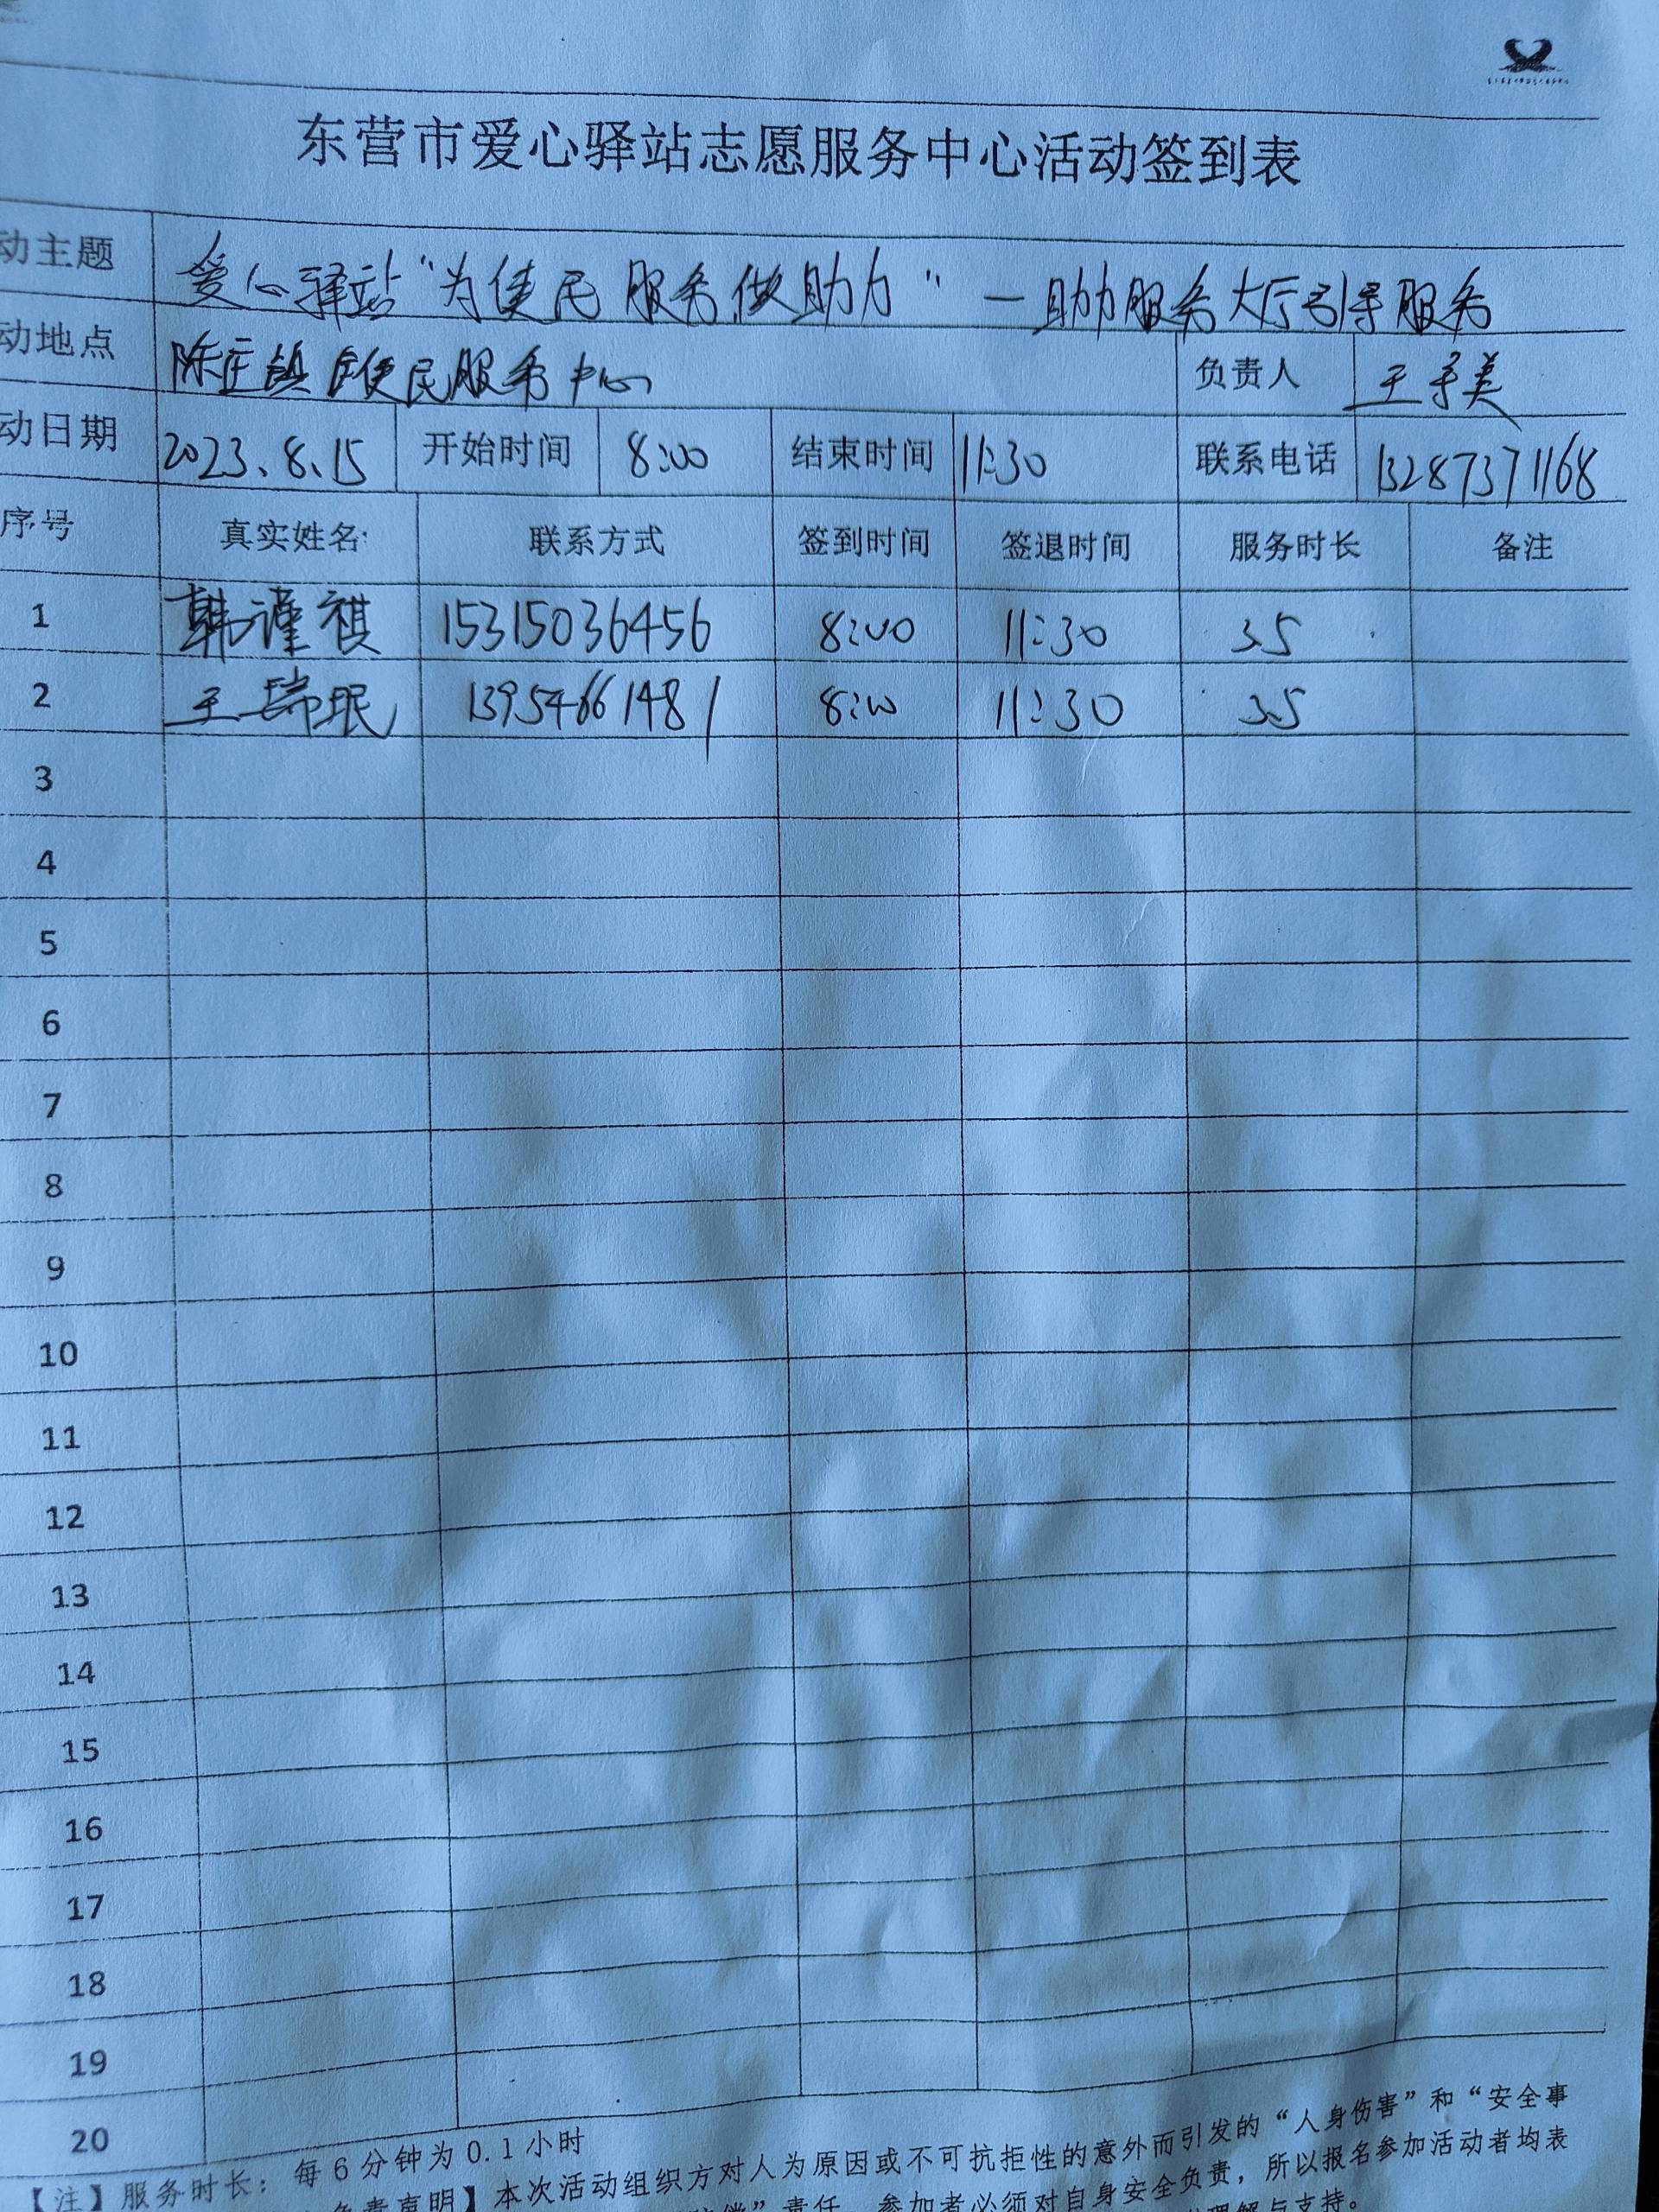 东营市爱心驿站志愿服务中心活动签到表
动主题 爱心驿站“为便民服务做助力”—助力服务大厅引导服务
动地点 陈庄镇便民服务中心 负责人 王美
动日期 2023.8.15 开始时间 8:00 结束时间 11:30 联系电话 13287371168
序号 真实姓名 联系方式 签到时间 签退时间 服务时长 备注
1 韩谨祺 15315036456 8:00 11:30 3.5
2 王瑞珉 13954661481 8:00 11:30 3.5
3
4
5
6
7
8
9
10
11
12
13
14
15
16
17
18
19
20
【注】服务时长：每6分钟为0.1小时
免责声明】本次活动组织方对人为原因或不可抗拒性的意外而引发的“人身伤害”和“安全事
”责任，参加者必须对自身安全负责，所以报名参加活动者均表
理解与支持。